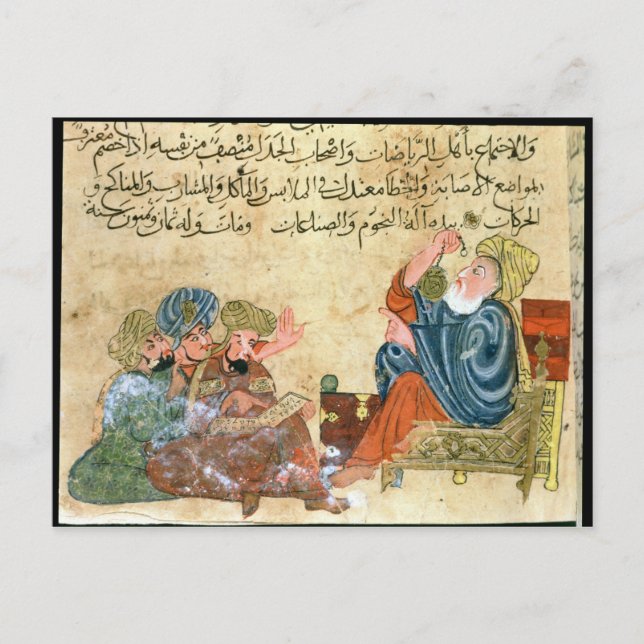 والاجتماع بأهل الرياضات واصحاب الجدل منصف من نفسه اذا خصم معترف
لمواضع الاصابة والخطا معتدل في الملابس والمآكل والمشارب والمناكح و
الحركات بيده آلة النجوم والصناعات ومات وله ثمان وستون سنة